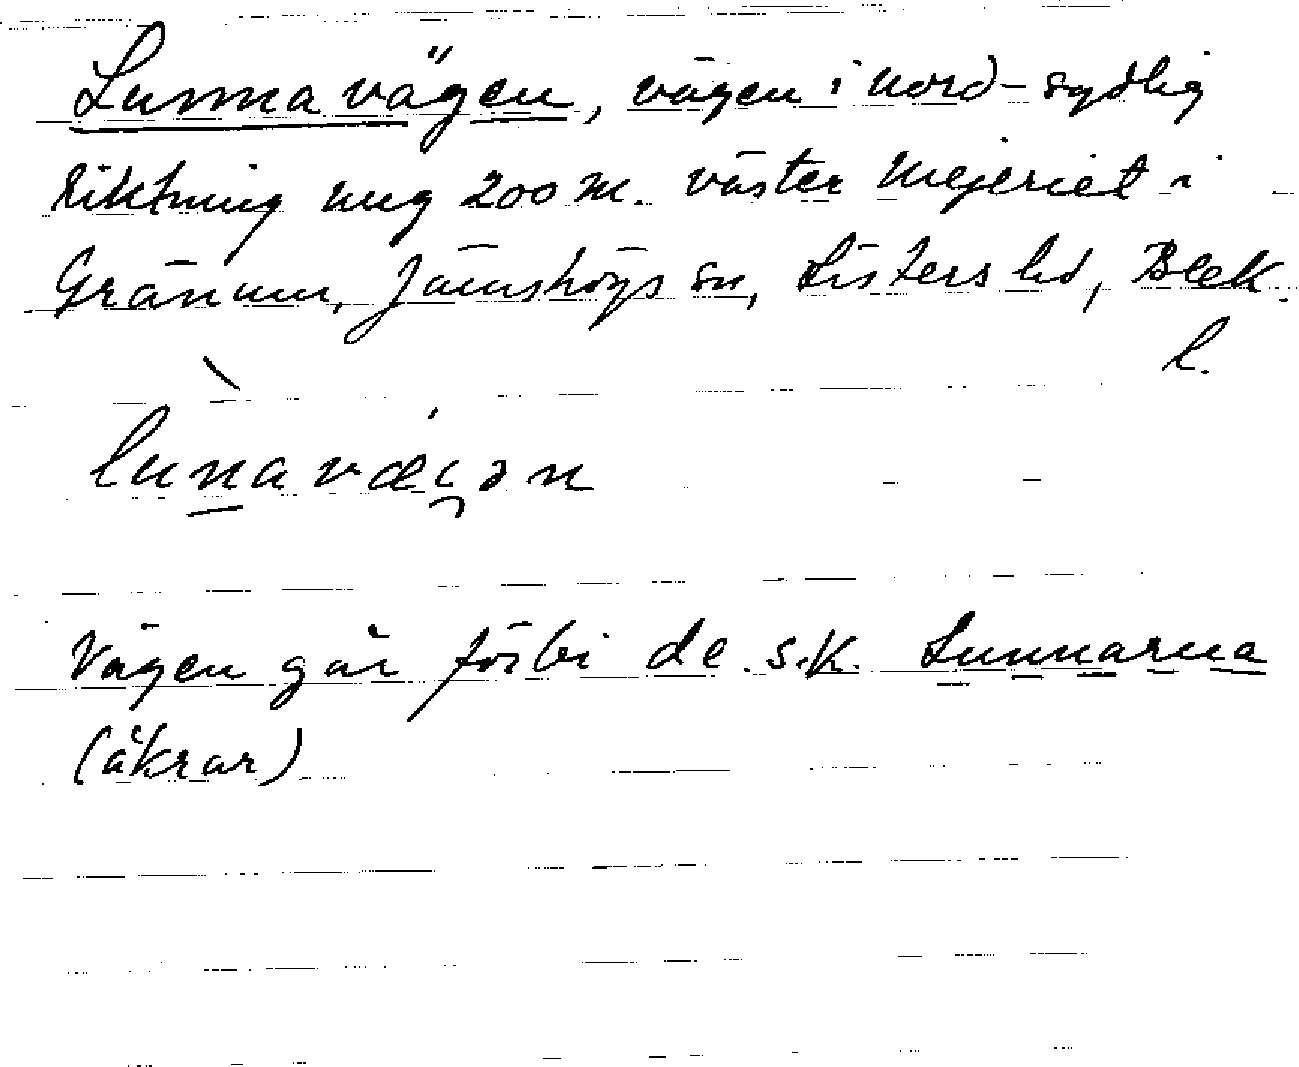 Lunnavägen, vägen i nord-sydlig
riktning ung 200 m. väster mejeriet i
Gränum, Jämshögs sn, Listers hd, Blek.
l.
lunavæi̯ən
Vägen går förbi de s.k. Lunnarna
(åkrar)